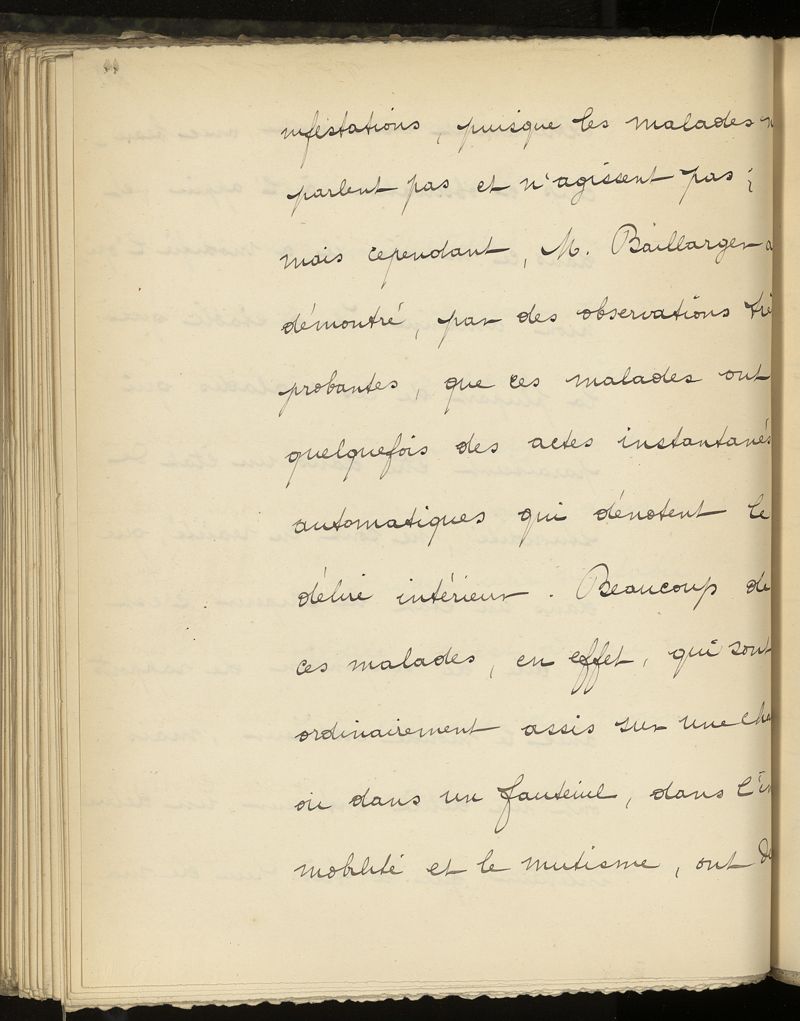 nifestations, puisque les malades n
parlent pas et n'agissent pas;
mais cependant, M. Baillarger a
démontré, par des observations trè
probantes, que ces malades ont
quelquefois des actes instantanés
automatiques qui dénotent le
délire intérieur. Beaucoup de
ces malades, en effet, qui sont
ordinairement assis sur une cha
ou dans un fauteuil, dans l'im
mobilité et le mutisme, ont de